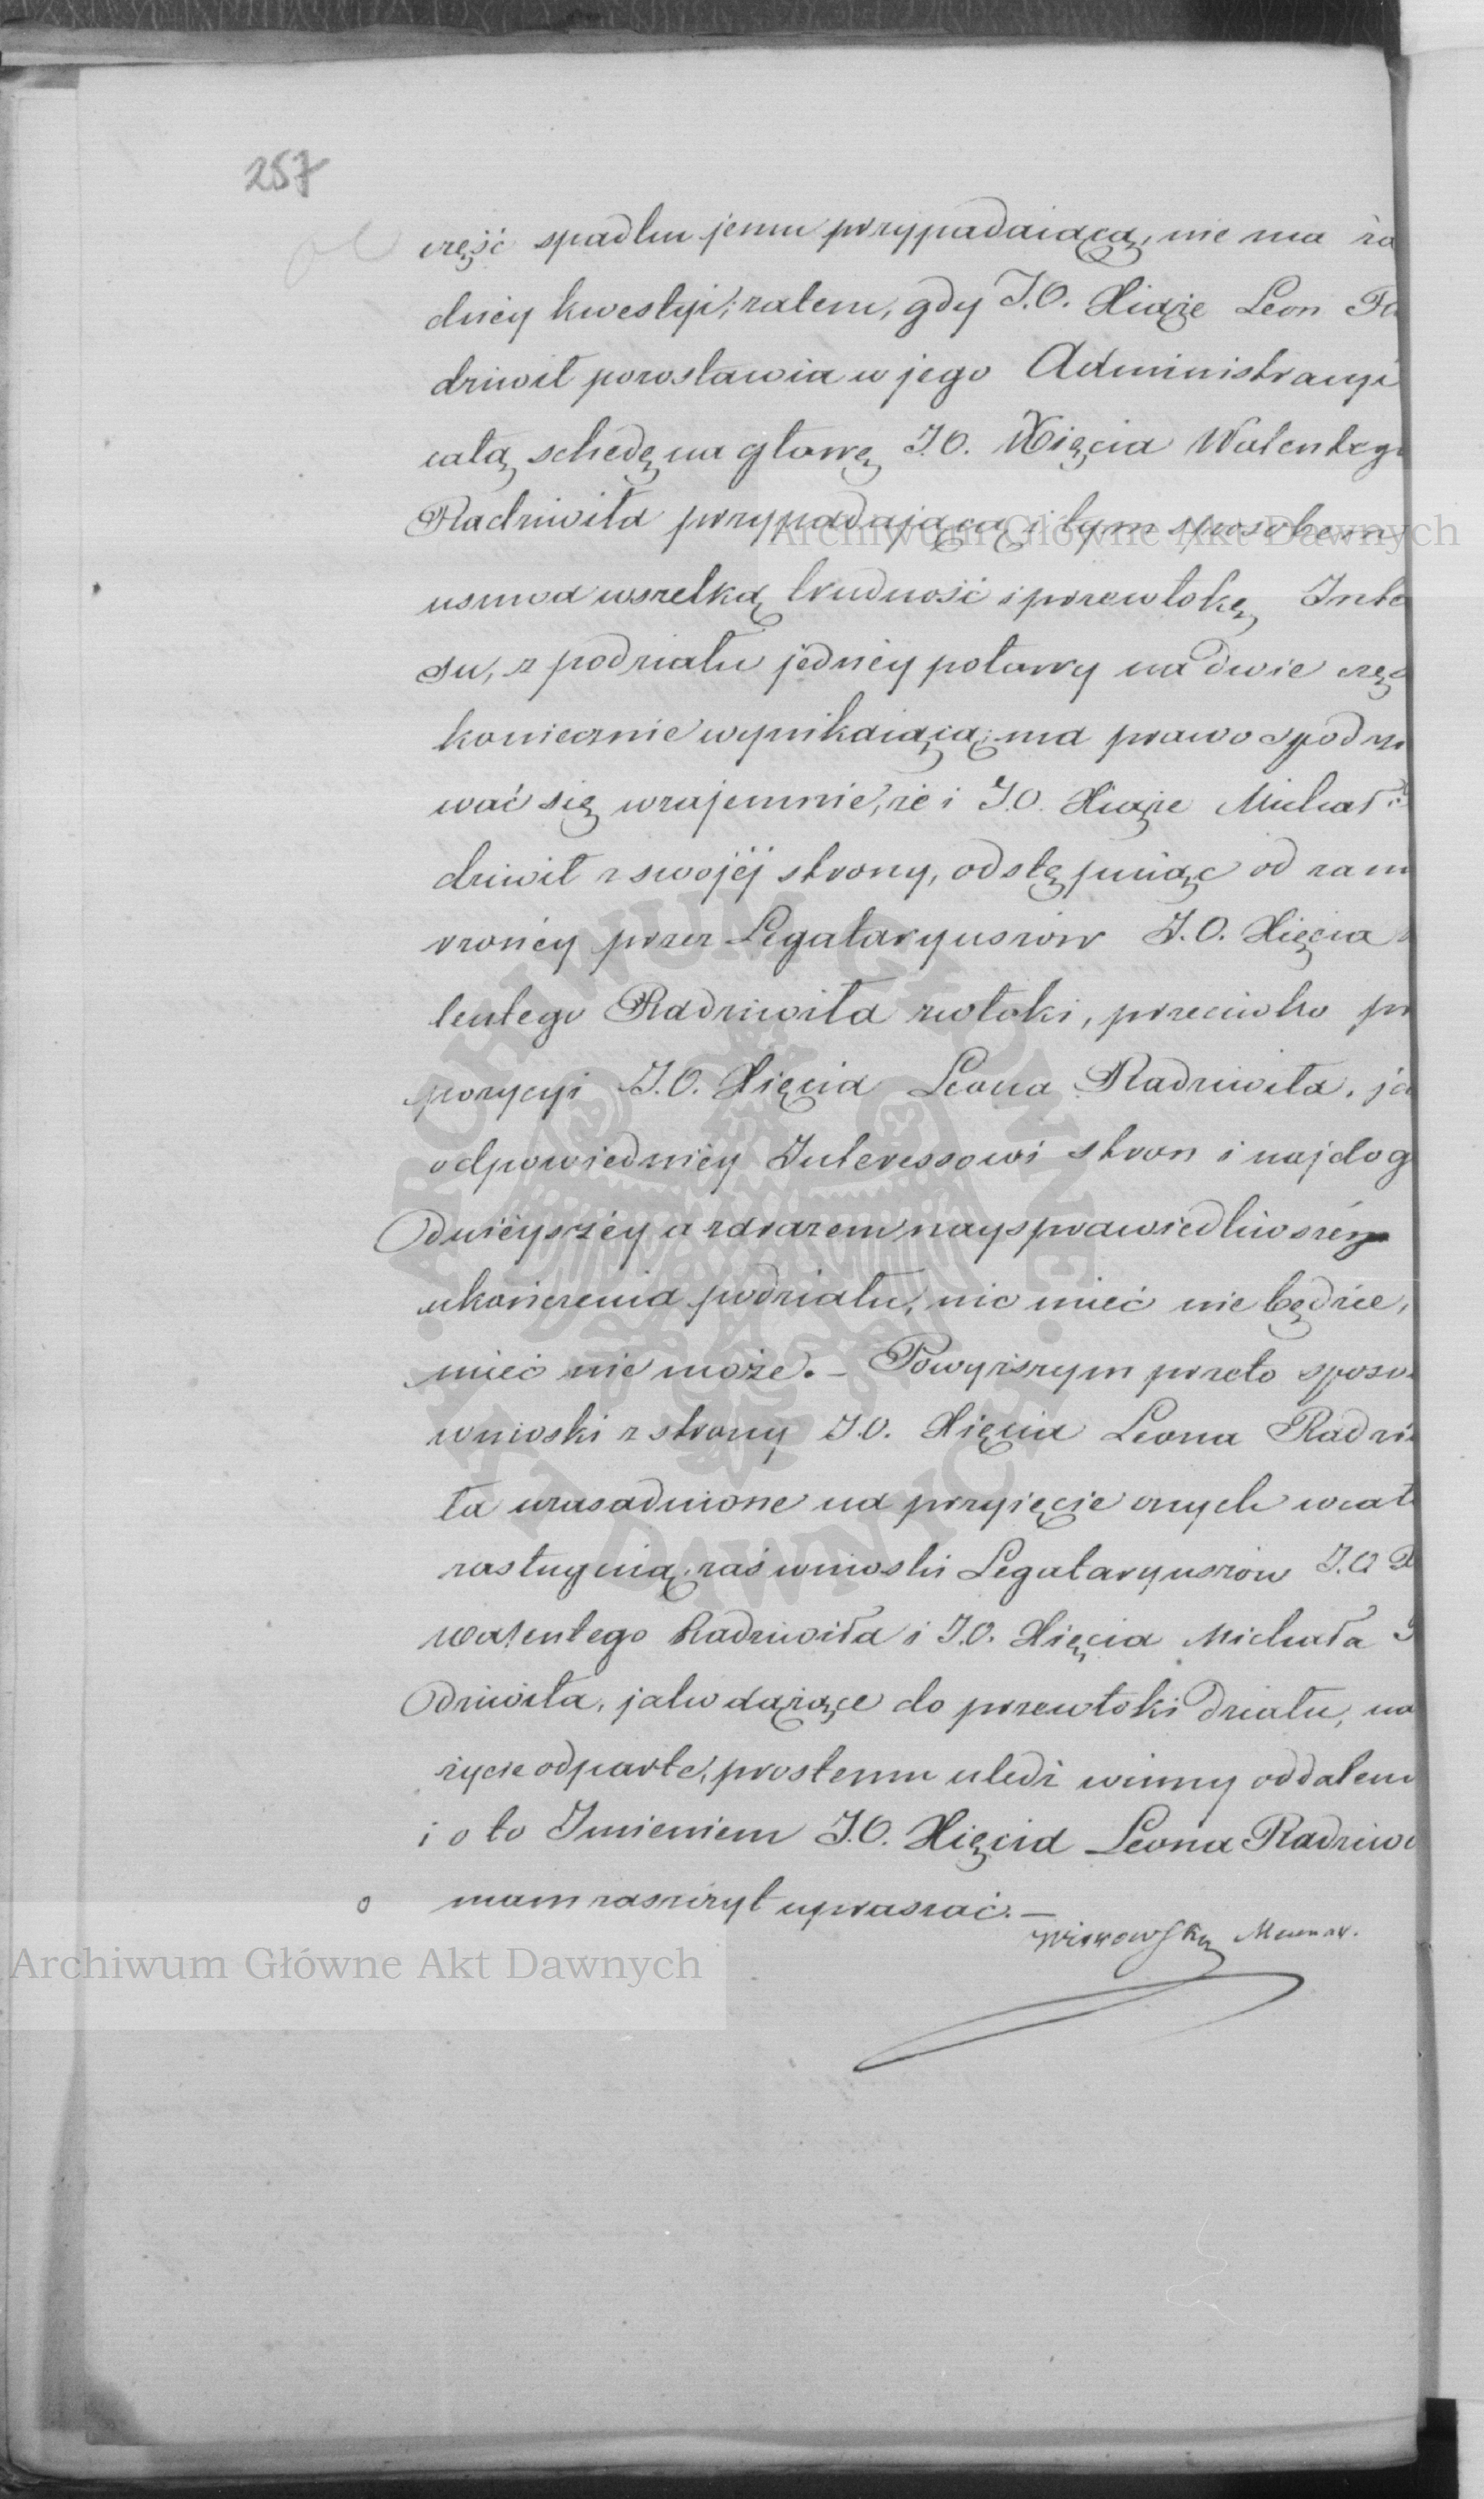 257
część spadku jemu przypadaiącą, nie ma ża
dnéy kwestyi; zatem, gdy J.O. Xiąże Leon Ra
dziwił pozostawia w jego Administracyi
całą schedę na głowę J.O. Xięcia Walentego
Radziwiła przypadającą i tym sposobem
usuwa wszelką trudność i przewłokę Inte
su, z podziału jednéy połowy na dwie czę
koniecznie wynikaiącą; ma prawo spodzi
wać się wzajemnie, że i J.O. Xiąże Michał
dziwił z swojéj strony, odstępuiąc od zam
rzonéy przez Legataryuszów J.O. Xięcia
lentego Radziwiła zwłoki, przeciwko pr
pozycyi J.O. Xięcia Leona Radziwiła, ja
odpowiedniéy Interessowi stron i najdog
dnieyszéy a zarazem naysprawiedliwszéy
ukończenia podziału, nic mieć nie będzie,
mieć nie może. – Powyższym przeto sposo
wnioski z strony J.O. Xięcia Leona Radzi
ła uzasadnione na przyięcie onych w cał
zasługuią, zaś wnioski Legataryuszów J.O. X
Walentego Radziwiła i J.O. Xięcia Michała
dziwiła, jako dążące do przewłoki działu, na
życie odparte, prostemu uledz winny oddaleni
i o to Imieniem J.O. Xięcia Leona Radziwi
mam zaszczyt upraszać. –
Archiwum Główne Akt Dawnych
Archiwum Główne Akt Dawnych
ARCHIWUM GŁÓWNE AKT DAWNYCH